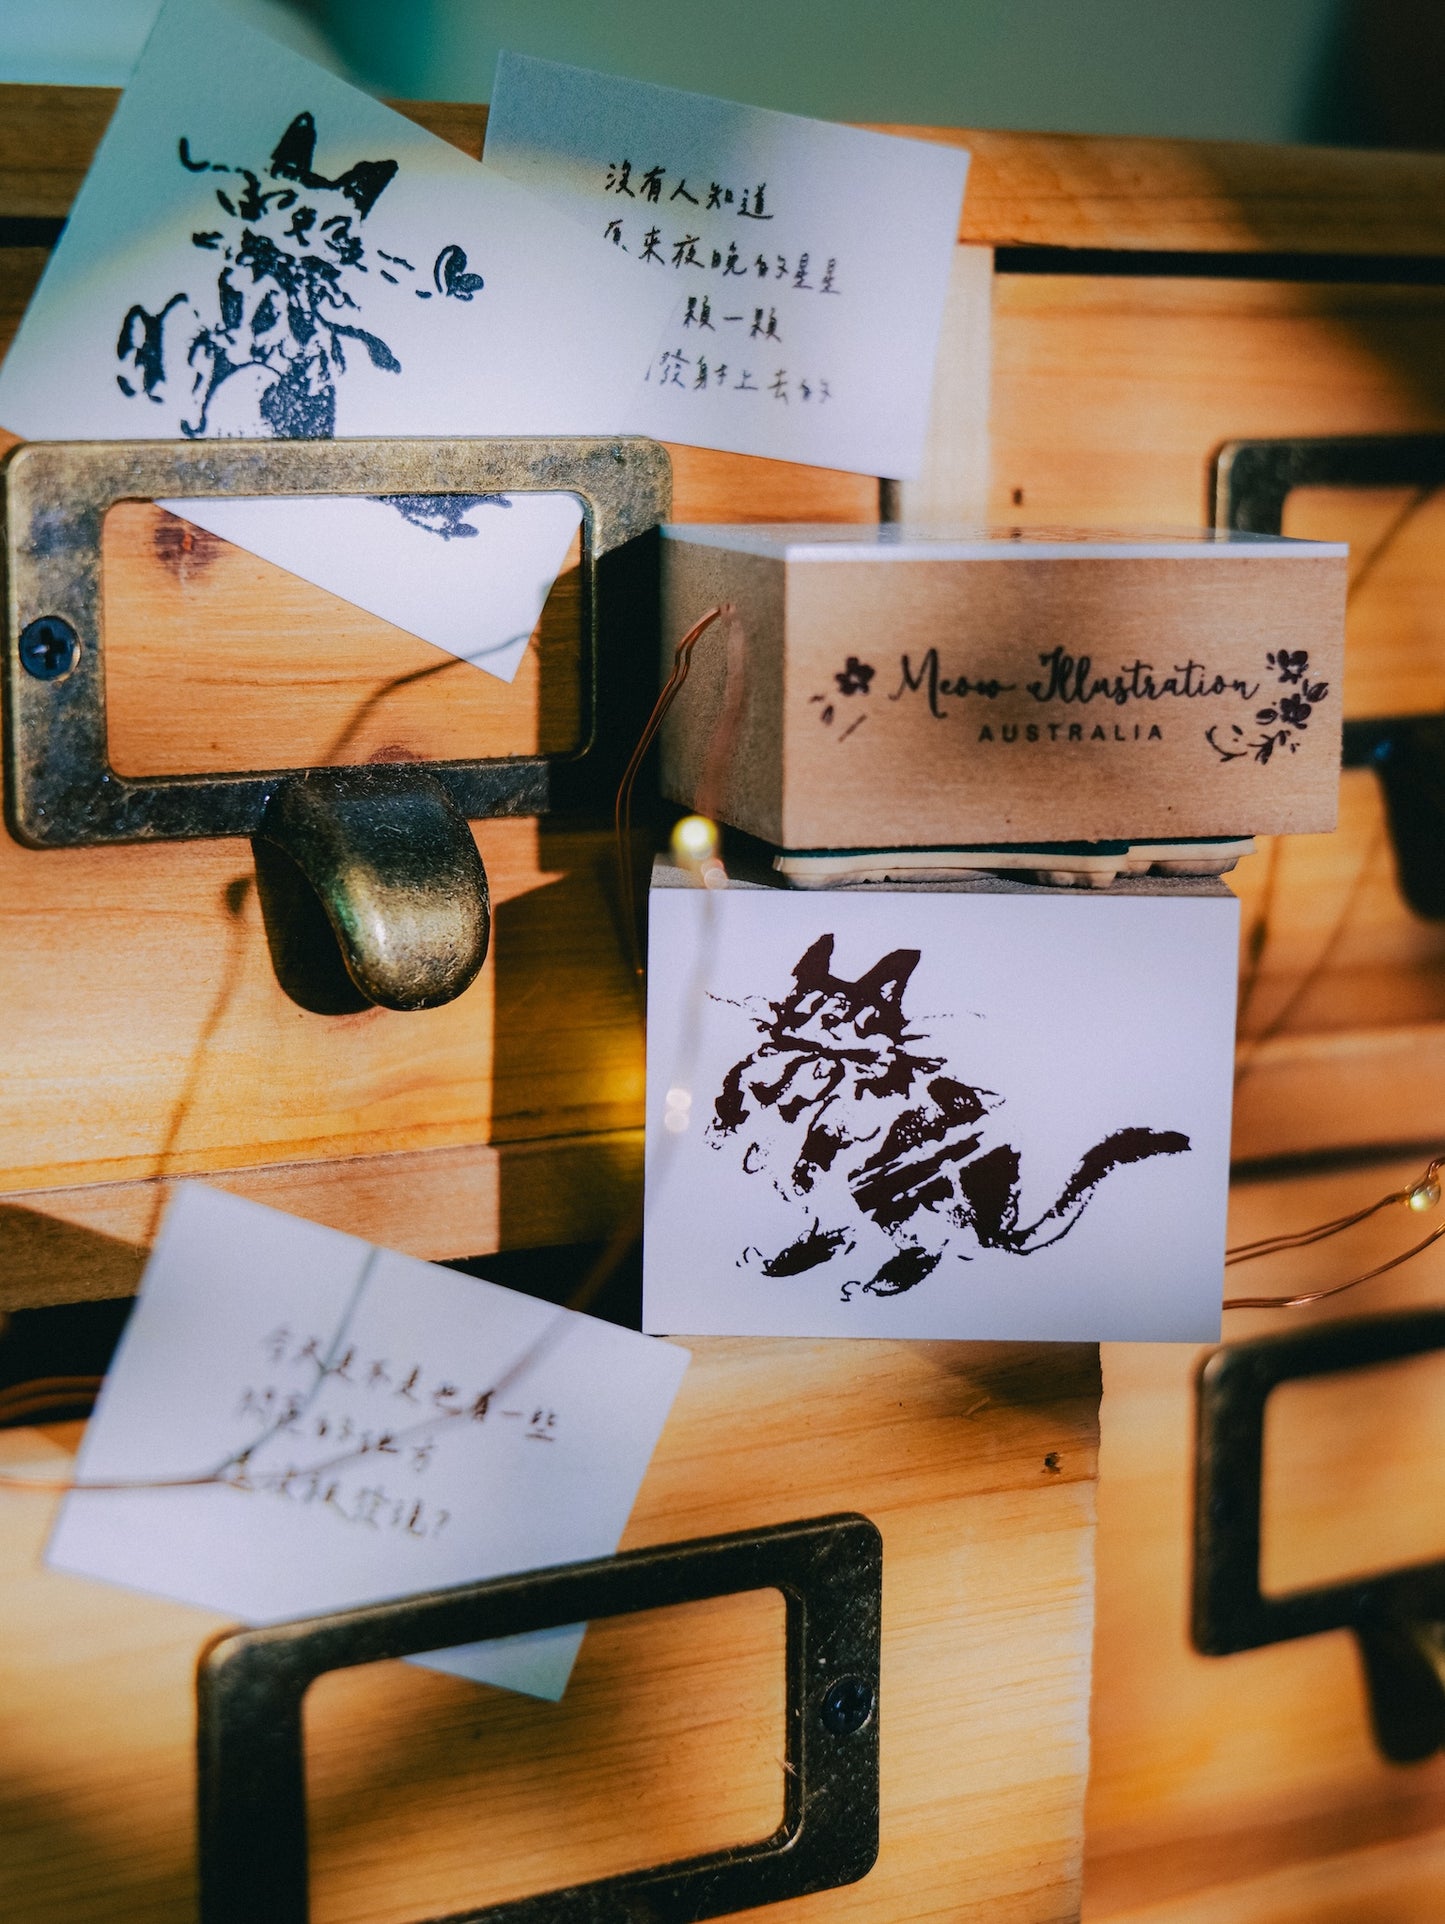 沒有人知道
原來夜晚的星星
顆一顆
發射上去的
Meow Illustration
AUSTRALIA
今天是不是也有一些
的地方
沒被發現?